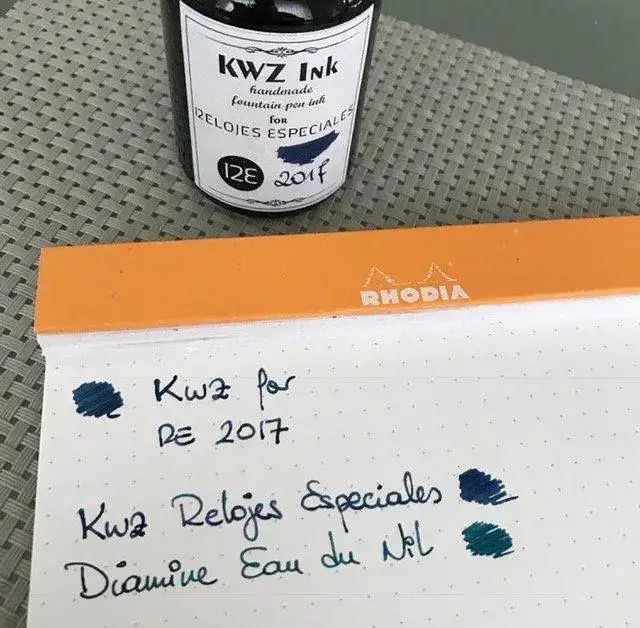 KWZ Ink
handmade
fountain pen ink
for
RELOJES ESPECIALES
RE
2017
RHODIA
Kwz for
RE 2017
Kwz Relojes Especiales
Diamine Eau du Nil